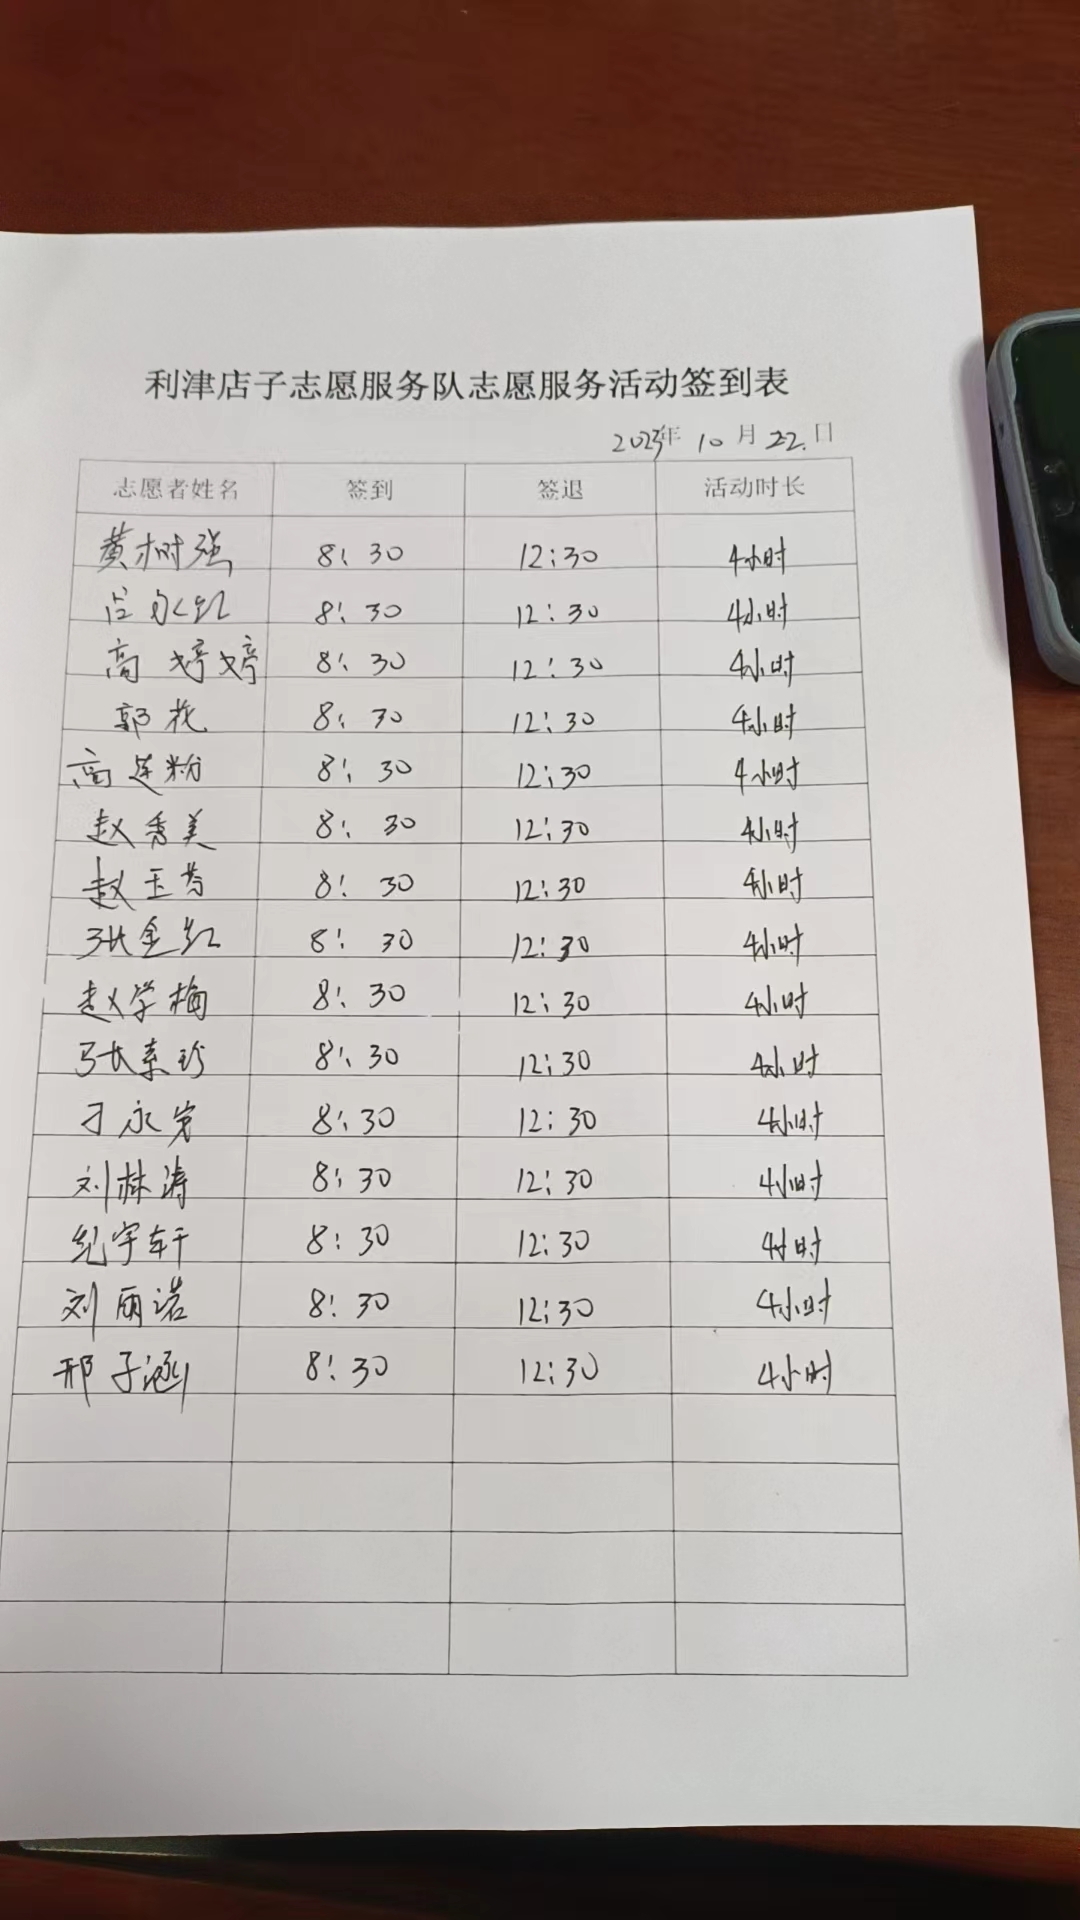 利津店子志愿服务队志愿服务活动签到表
2023年 10 月 22 日
志愿者姓名 签到 签退 活动时长
黄树强 8:30 12:30 4小时
永红 8:30 12:30 4小时
高婷婷 8:30 12:30 4小时
郭花 8:30 12:30 4小时
高莲粉 8:30 12:30 4小时
赵秀美 8:30 12:30 4小时
赵玉芳 8:30 12:30 4小时
张金红 8:30 12:30 4小时
赵学梅 8:30 12:30 4小时
张素珍 8:30 12:30 4小时
刁永 8:30 12:30 4小时
刘林涛 8:30 12:30 4小时
纪宇轩 8:30 12:30 4小时
刘丽诺 8:30 12:30 4小时
邢子涵 8:30 12:30 4小时